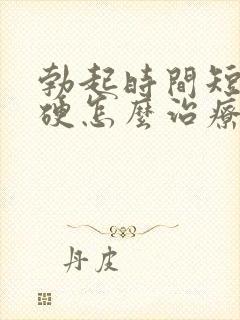 勃起時間短
硬怎麼治療
丹皮